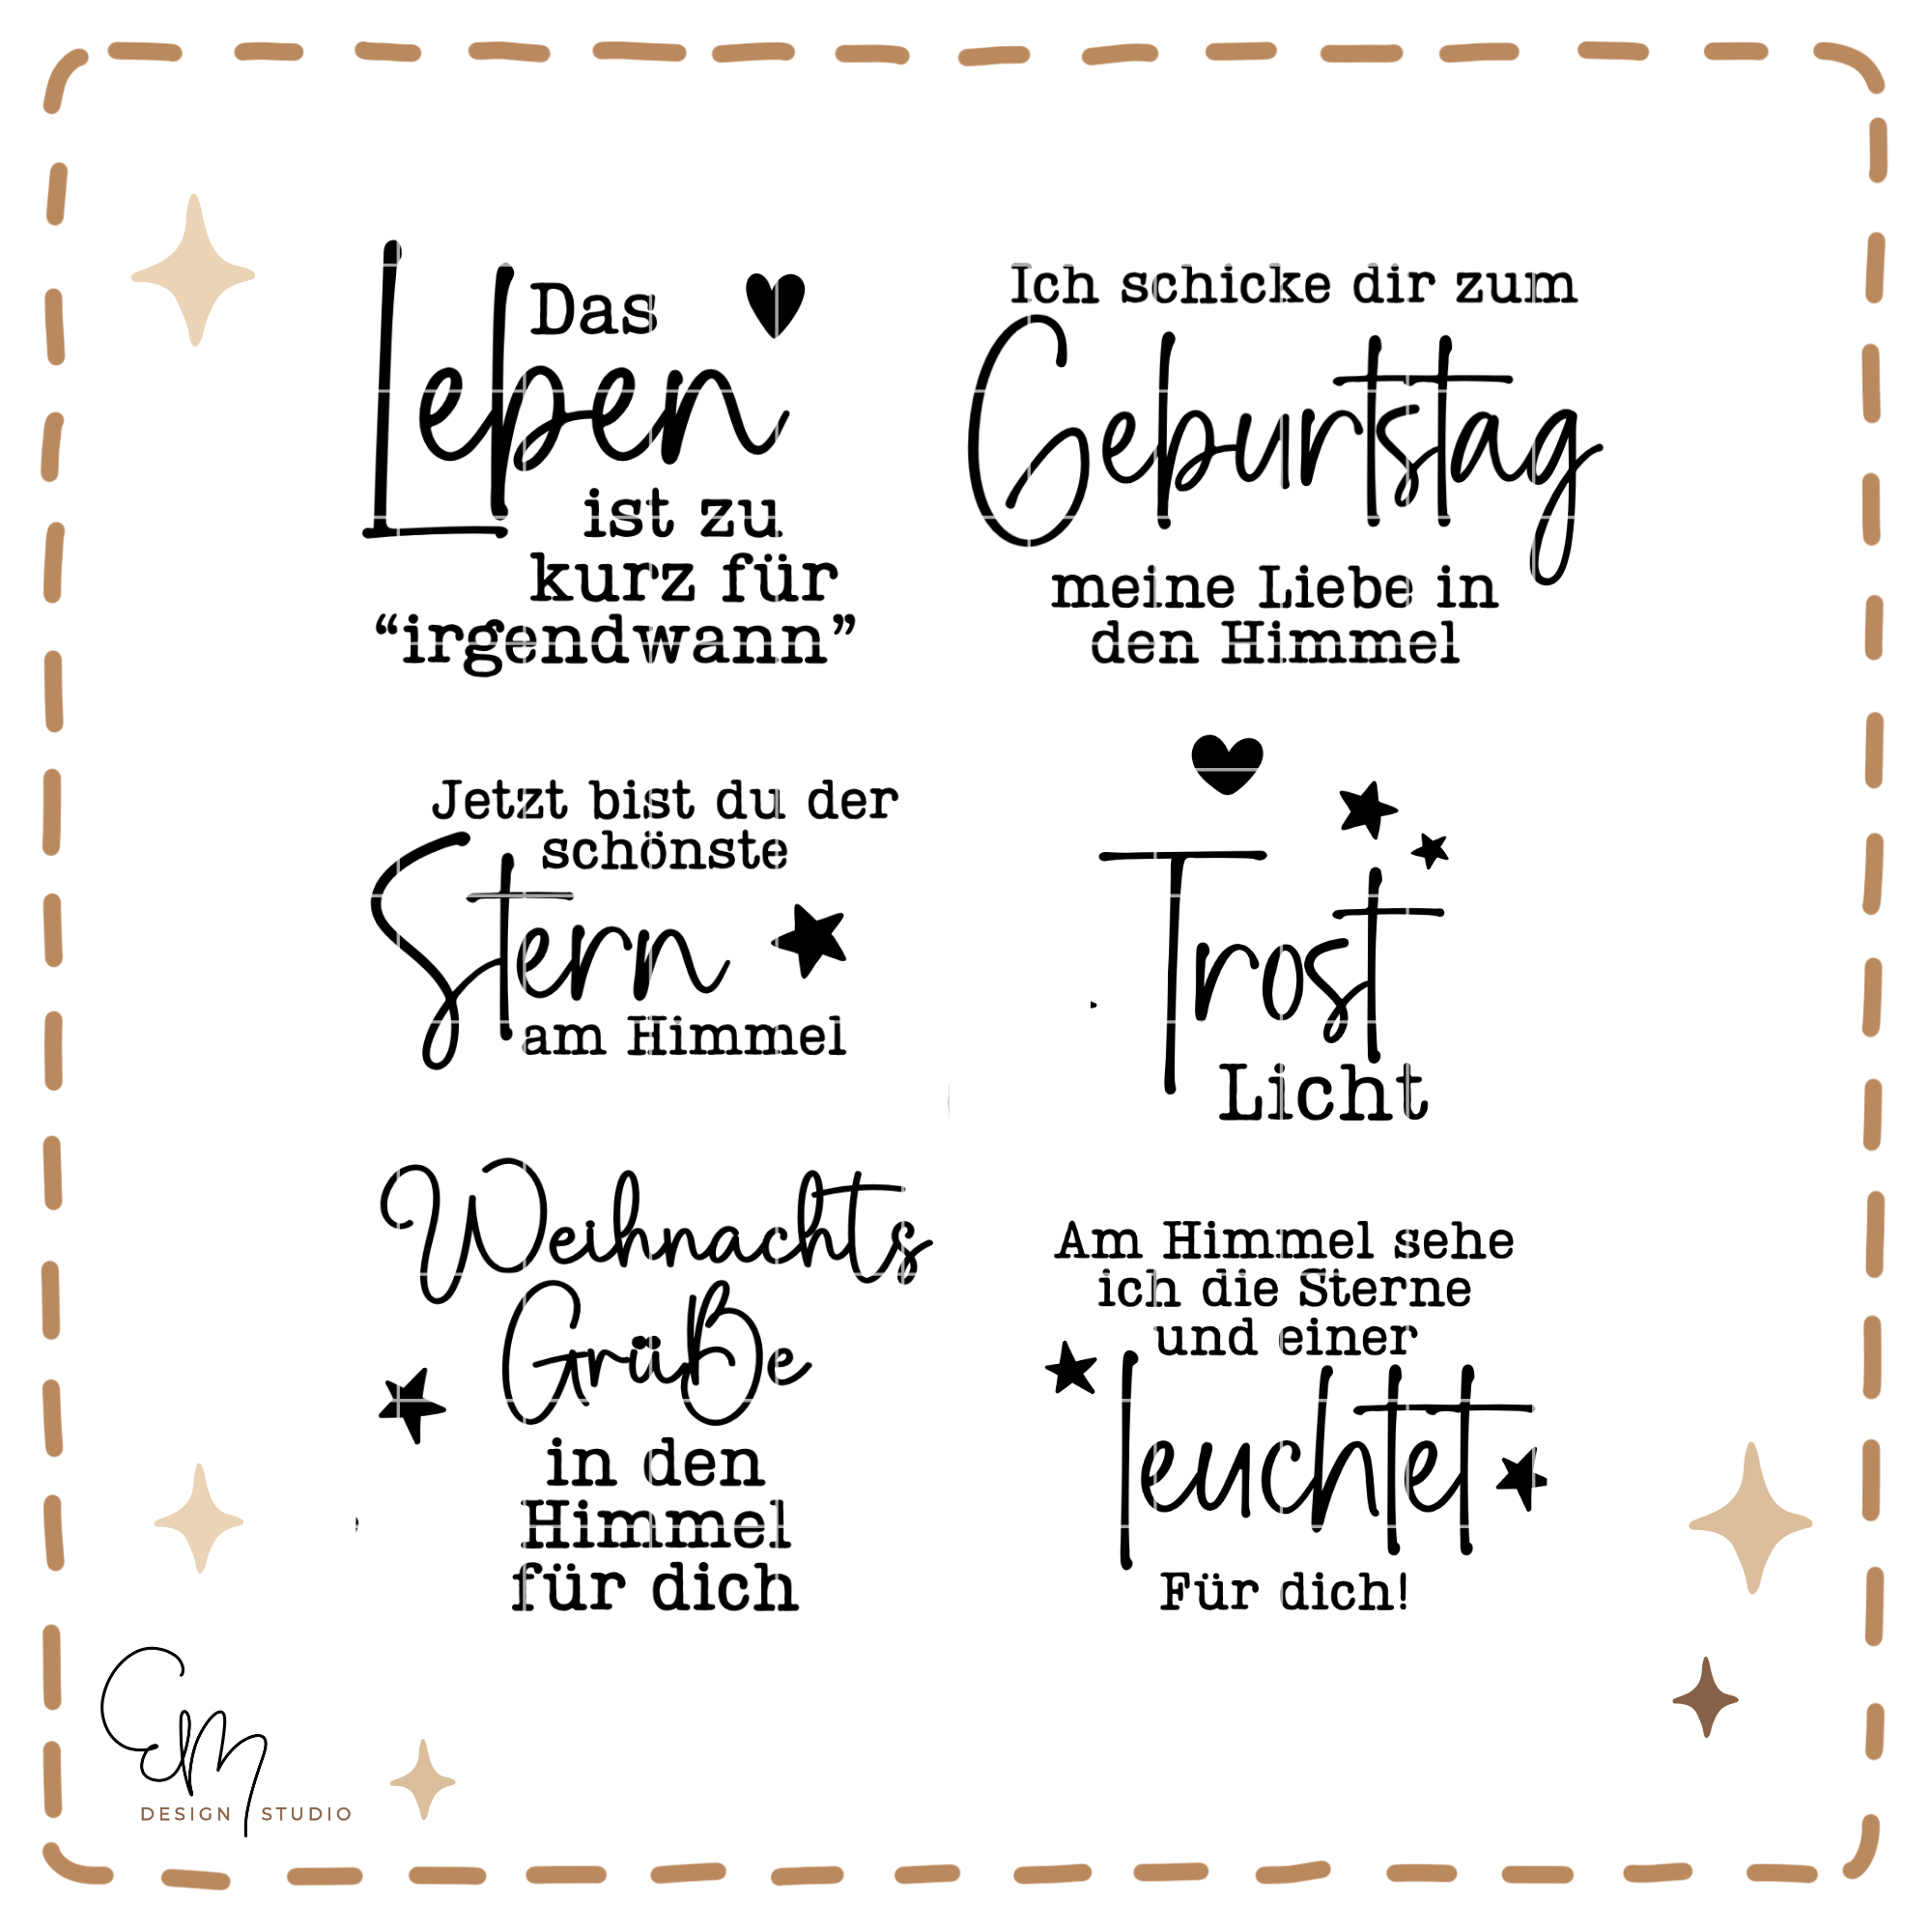 Das
Leben
ist zu
kurz für
“irgendwann”
Ich schicke dir zum
Geburtstag
meine Liebe in
den Himmel
Jetzt bist du der
schönste
Stern
am Himmel
Trost
Licht
Weihnachts
Grüße
in den
Himmel
für dich
Am Himmel sehe
ich die Sterne
und einer
leuchtet
Für dich!
CM
DESIGN STUDIO